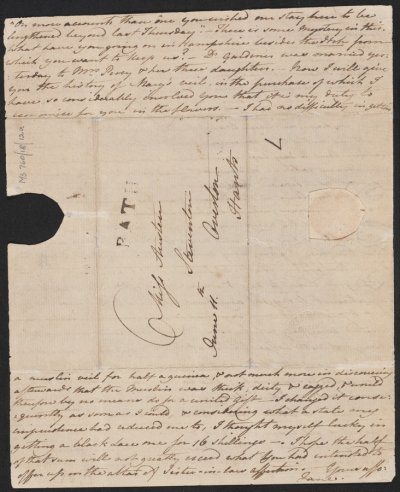 "On more accounts than one you wished our stay here to be
lengthened beyond last Thursday." - There is some Mystery in this.
What have you going on in Hampshire besides the Itch from
which you want to keep us? - Dr. Gardiner was married yes-
terday to Mrs Percy & her three daughters. Now I will give
you the history of Mary's veil, in the purchase of which I
have so considerably involved you that it is my duty to
economise for you in the flowers. - I had no difficulty in getting
MS 760/18/12a
BATH
Miss Austen
Steventon
Overton
Hants
June 11th
7
a muslin veil for half a guinea, & not much more in discovering
afterwards that the Muslin was thick, dirty & ragged, & would
therefore by no means do for a united Gift - I changed it conse-
quently as soon as I could, & considering what a state my
imprudence had reduced me to, I thought myself lucky in
getting a black lace one for 16 shillings -. I hope the half
of that sum will not greatly exceed what You had intended to
offer up on the altar of Sister-in-law affection. Yours affe:
Jane.